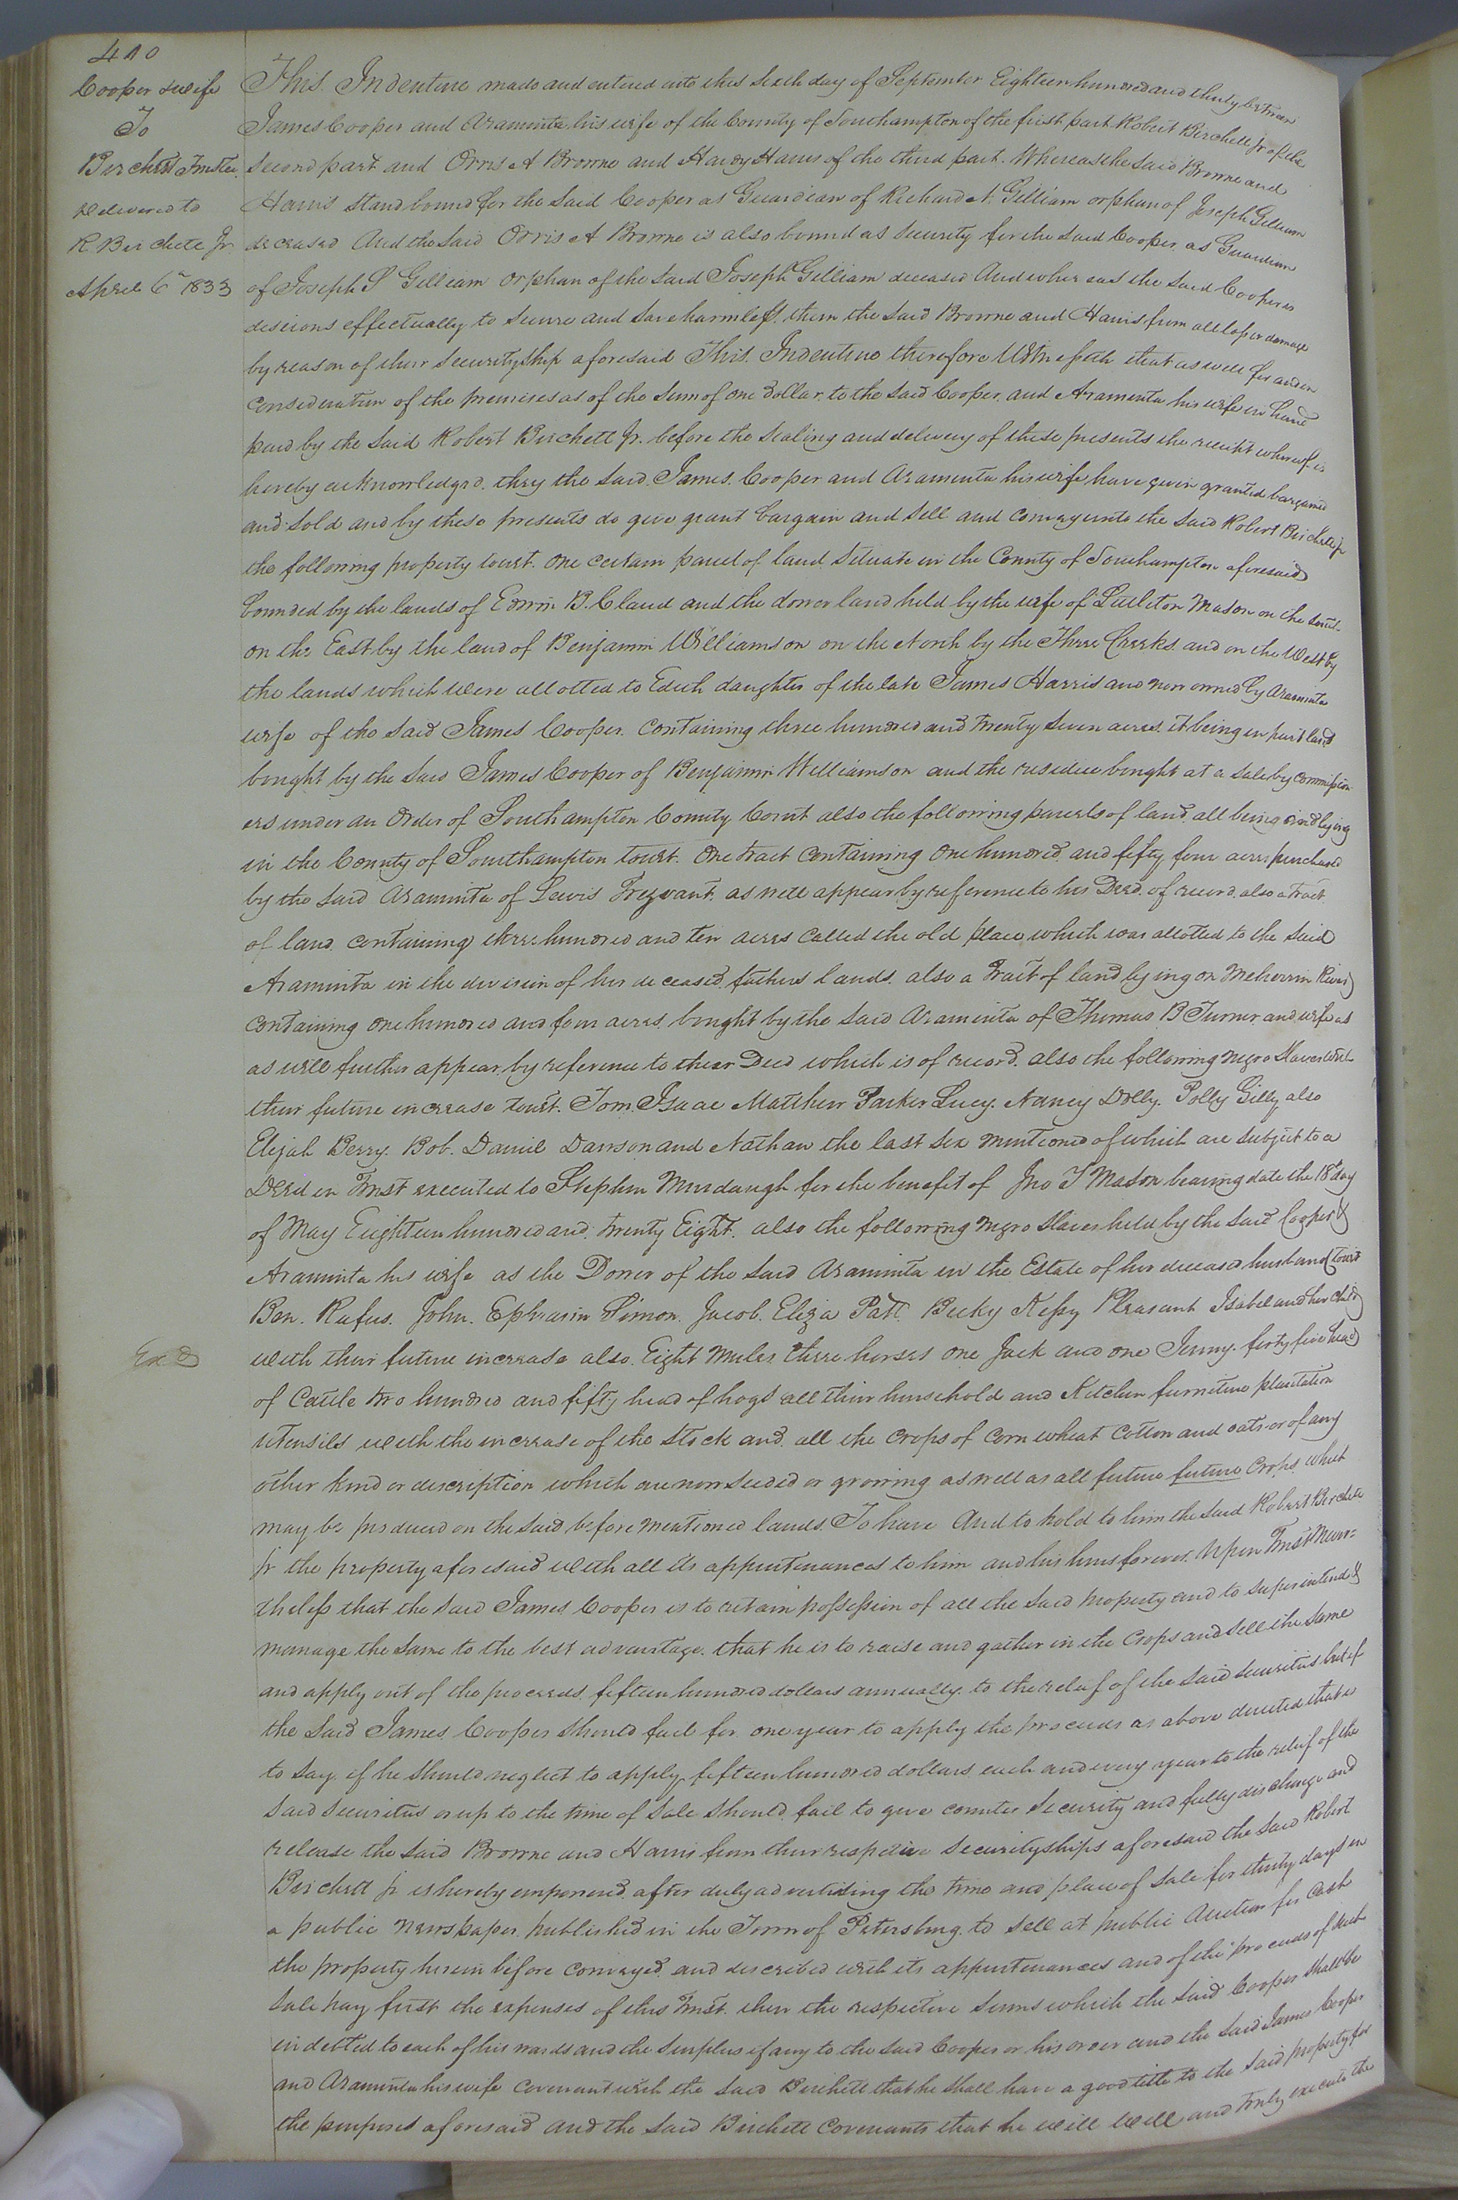 410
Cooper & wife
To
Birchett Trustee
Delivered to
R. Birchett Jr.
April 6th 1833
This Indenture made and entered into this Sixth day of September Eighteen hundred and thirty between
James Cooper and Araminta his wife of the County of Southampton of the first part Robert Birchett Jr of the
second part and Orris A Browne and Harvy Harris of the third part. Whereas the said Browne and
Harris stand bound for the said Cooper as Guardian of Richard A. Gilliam orphan of Joseph Gilliam
deceased And the said Orris A Browne is also bound as security for the said Cooper as Guardian
of Joseph S Gilliam orphan of the said Joseph Gilliam deceased And whereas the said Cooper is
desirous effectually to secure and save harmless them the said Browne and Harris from all loss or damage
by reason of their securityship aforesaid This Indenture therefore Witnesseth that as well for and in
consideration of the premises as of the sum of one dollar to the said Cooper and Araminta his wife in hand
paid by the said Robert Birchett Jr. before the sealing and delivery of these presents the receipt whereof is
hereby acknowledged they the said James Cooper and Araminta his wife have given granted bargained
and sold and by these presents do give grant bargain and sell and convey unto the said Robert Birchett Jr
the following property towit. One certain parcel of land situate in the County of Southampton aforesaid
bounded by the lands of Edwin B. Claud and the dower land held by the wife of Littleton Mason on the south
on the East by the land of Benjamin Williamson on the North by the Three Creeks and on the West by
the lands which were allotted to Edith daughter of the late James Harris and now owned by Araminta
wife of the said James Cooper. Containing three hundred and twenty seven acres. it being in part land
bought by the said James Cooper of Benjamin Williamson and the residue bought at a sale by commission
ers under an Order of Southampton County Court also the following parcels of land all being and lying
in the County of Southampton towit. One tract containing one hundred and fifty four acres purchased
by the said Araminta of Lewis Trezvant. as will appear by reference to his Deed of record. also a tract
of land containing three hundred and ten acres called the old place which was allotted to the said
Araminta in the division of her deceased fathers lands. also a tract of land lying on Meherrin River
containing one hundred and four acres bought by the said Araminta of Thomas B Turner and wife as
as will further appear by reference to their Deed which is of record. also the following negro Slaves with
their future increase towit. Tom. Isaac Matthew Parker Lucy. Nancy Dolly. Polly Gilly also
Elijah Berry. Bob. Daniel Dawson and Nathan the last six mentioned of which are subject to a
Deed in Trust executed to Stephen Murdaugh for the benefit of Jno T Mason bearing date the 18th day
of May Eighteen hundred and twenty Eight. also the following negro slaves held by the said Cooper &
Araminta his wife as the Dower of the said Araminta in the Estate of her deceased husband (towit
Ben. Rufus. John. Ephraim Simon. Jacob. Eliza Patt Becky Kessy Pleasant Isabel and her child)
Exd
with their future increase also. Eight Mules. three horses one Jack and one Jenny. forty five head
of Cattle two hundred and fifty head of hogs all their household and Kitchen furniture plantation
utensils with the increase of the stock and all the crops of corn wheat cotton and oats. or of any
other kind or description which are now seeded or growing as well as all future future crops which
may be produced on the said before mentioned lands. To have And to hold to him the said Robert Birchett
Jr the property aforesaid with all its appurtenances to him and his heirs forever. Upon Trust Never=
theless that the said James Cooper is to retain possession of all the said property and to superintend &
manage the same to the best advantage. that he is to raise and gather in the crops and sell the same
and apply out of the proceeds fifteen hundred dollars annually to the relief of the said securities but if
the said James Cooper should fail for one year to apply the proceeds as above directed that is
to say if he should neglect to apply fifteen hundred dollars each and every year to the relief of the
said securities or up to the time of sale should fail to give counter security and fully discharge and
release the said Browne and Harris from their respective securityships aforesaid the said Robert
Birchett Jr is hereby empowered after duly advertising the time and place of sale for thirty days in
a public newspaper published in the Town of Petersburg to sell at public Auction for cash
the property herein before conveyed and described with its appurtenances and of the proceeds of such
sale pay first the expenses of this Trust. then the respective sums which the said Cooper shall be
indebted to each of his wards and the surplus if any to the said Cooper or his order and the said James Cooper
and Araminta his wife covenant with the said Birchett that he shall have a good title to the said property for
the purposes aforesaid and the said Birchett covenants that he will well and truly execute the